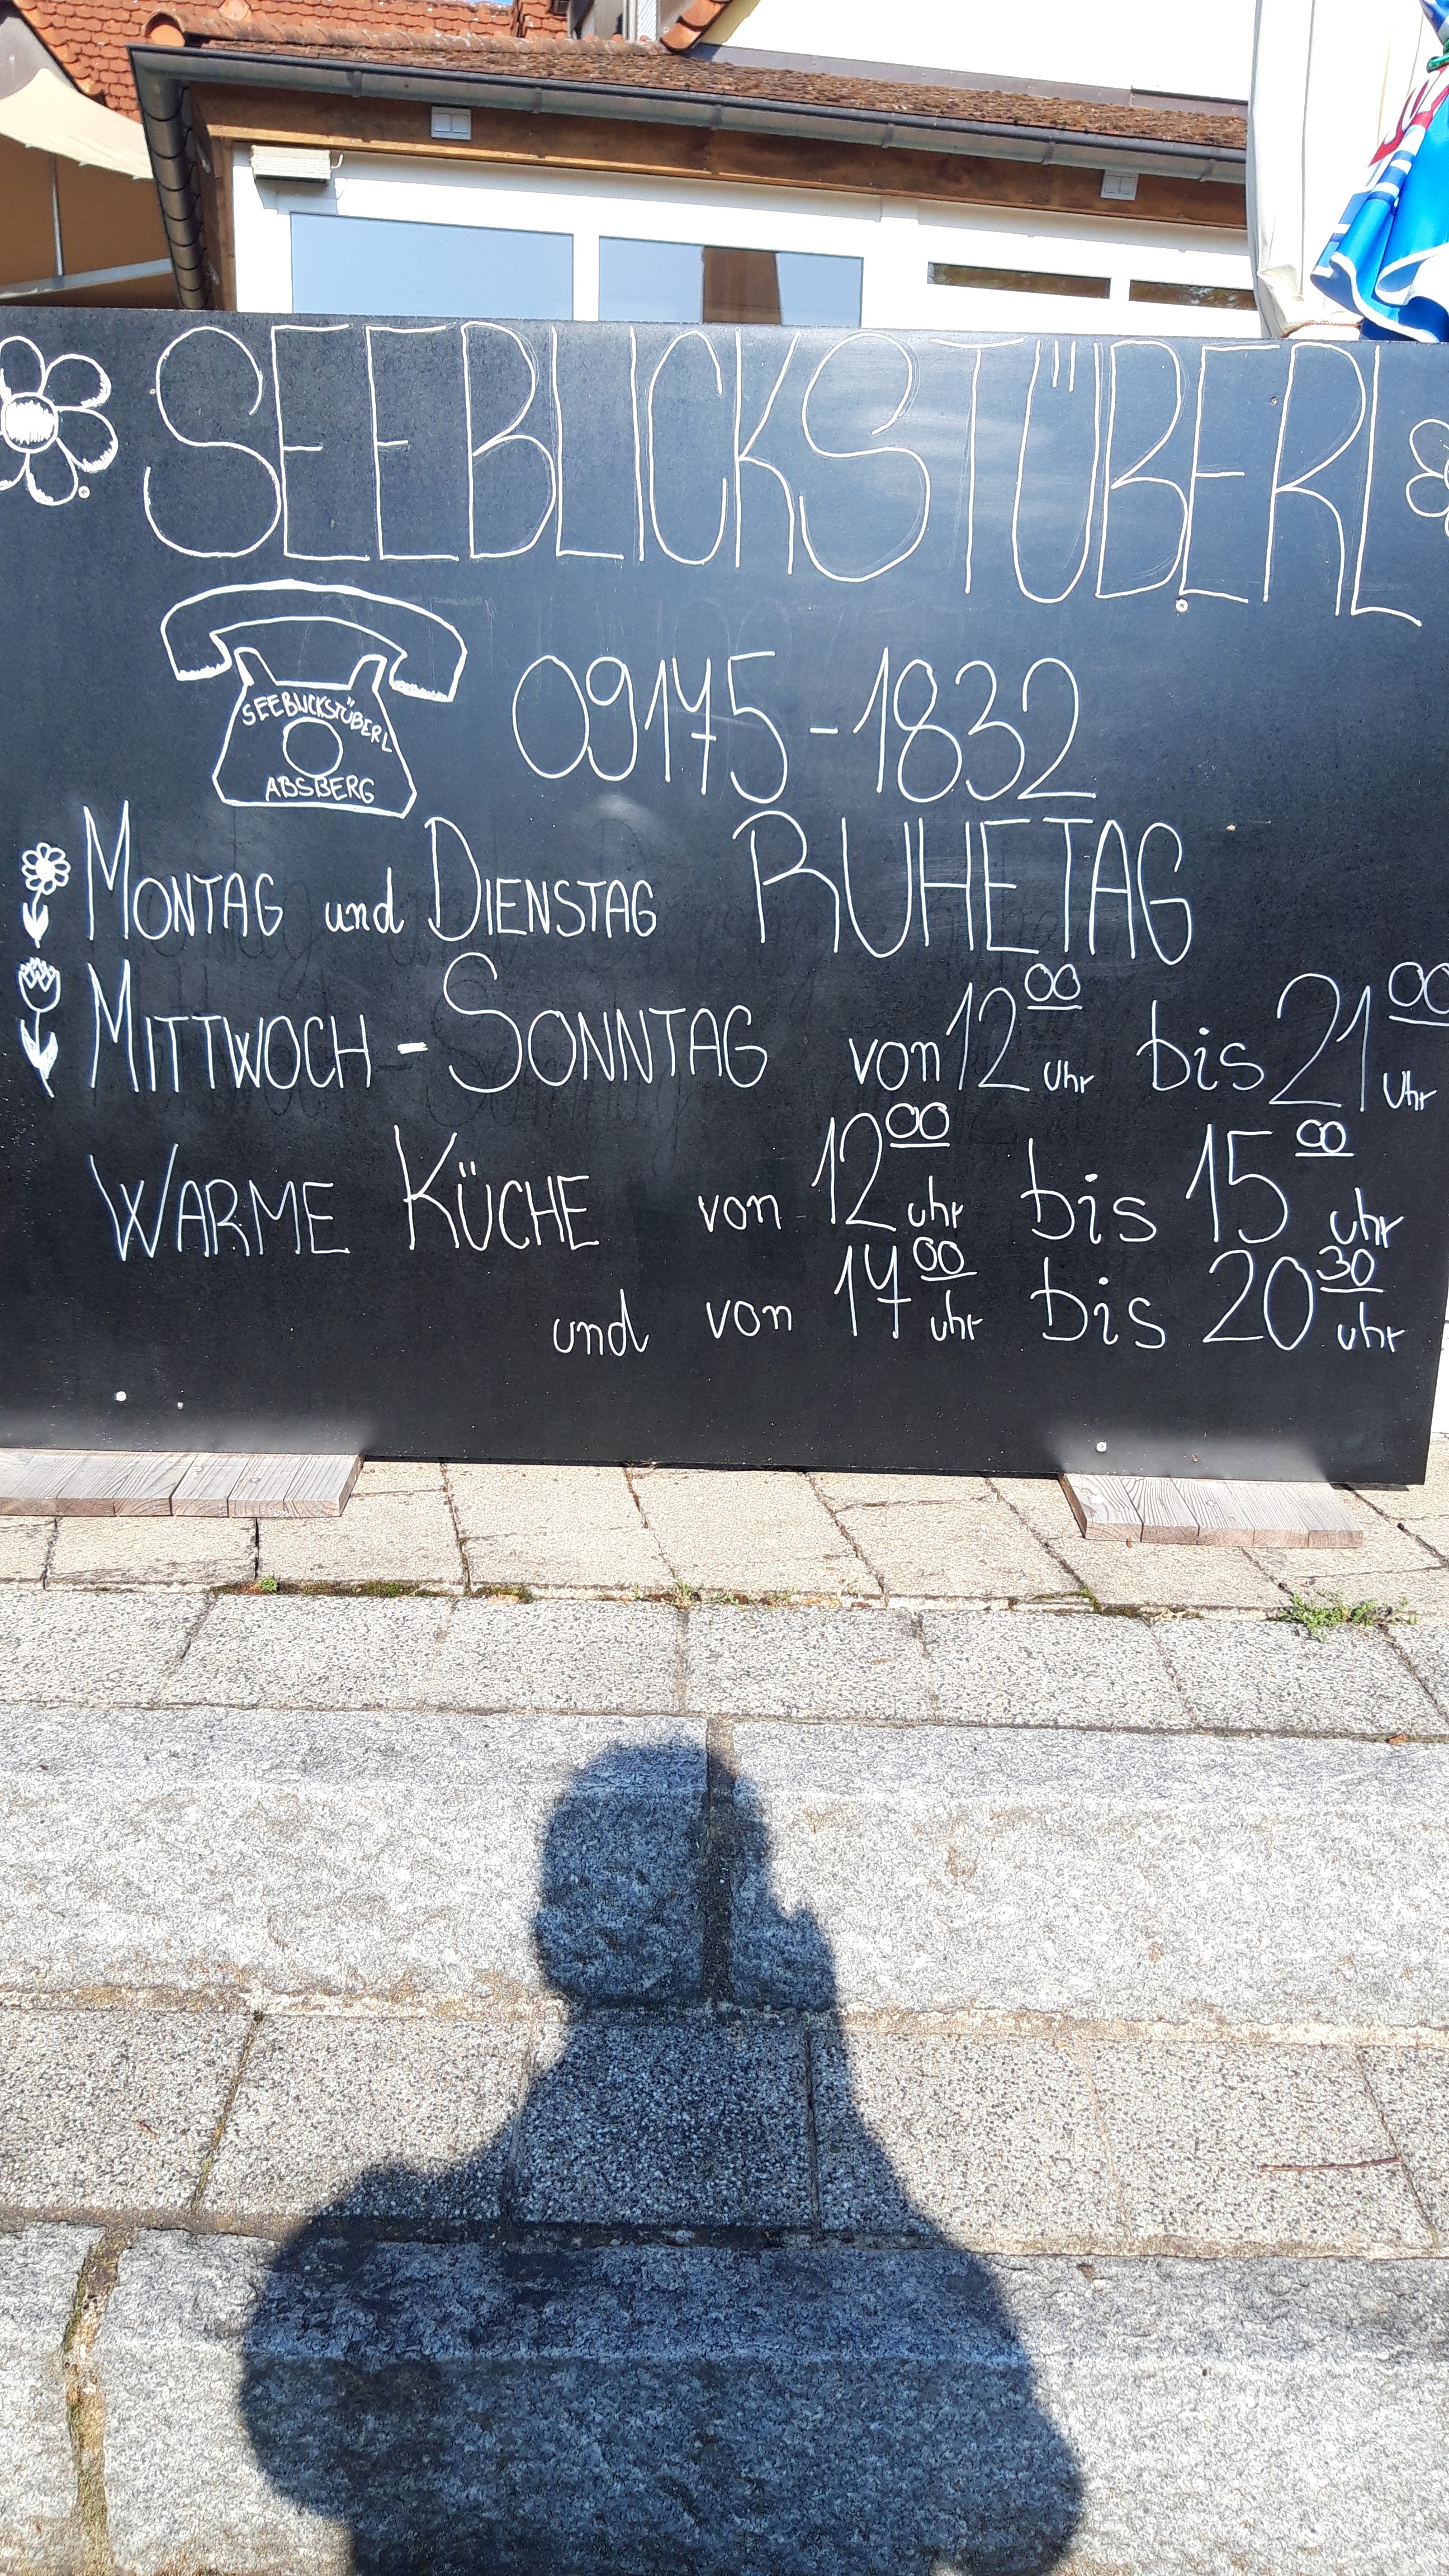 SEEBLICKSTÜBERL
SEEBLICKSTÜBERL
ABSBERG
09175-1832
MONTAG und DIENSTAG RUHETAG
MITTWOCH - SONNTAG von 12 00 Uhr bis 21 00 Uhr
WARME KÜCHE von 12 00 uhr bis 15 00 uhr
und von 17 00 uhr bis 20 30 uhr